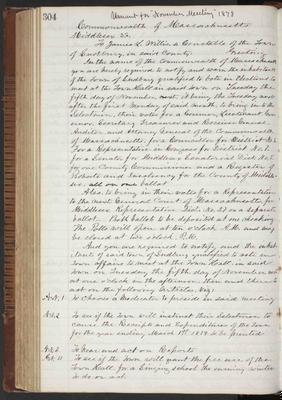 304
Warrant for November Meeting 1878
Commonwealth of Massachusetts
Middlesex SS.
To James L. Willis a Constable of the Town
of Sudbury, in said County. Greeting
In the name of the Commonwealth of Massachusetts
you are hereby required to notify and warn the inhabitants
of the Town of Sudbury qualified to vote in Elections to
meet at the Town Hall in said Town on Tuesday, the
fifth day of November next, it being the Tuesday next
after the first Monday of said month, to bring in to the
Selectmen, their votes for a Governor, Lieutenant Gov-
ernor, Secretary, Treasurer and Receiver General
Auditor, and Attorney General of the Commonwealth
of Massachusetts; for a Councillor for District No.
For a Representative in Congress for District No. 7.
for a Senator for Middlesex Senatorial Dist. No.
for one County Commissioner, and a Register of
Probate and Insolvency for the County of Middle-
sex. all on one ballot
Also to bring in their votes for a Representative
to the next General Court of Massachusetts for
Middlesex Representative Dist. No. 23 on a separate
ballot. Both ballots to be deposited at one checking
The Polls will open at ten o'clock A.M. and may
be closed at two o'clock P.M.
And you are required to notify and the inhab-
itants of said town of Sudbury qualified to vote in
Town affairs to meet at the Town Hall, in said
Town on Tuesday, the fifth day of November next
at one o'clock in the afternoon, then and there to
act on the following Articles, viz:
Art. 1 To choose a Moderator to preside in said meeting
Art. 2 To see if the Town will instruct their Selectmen to
cause the Receipts and Expenditures of the Town
for the year ending March 1st 1879 to be printed
Art. 3. To hear and act on Reports
To see if the Town will grant the free use of the
Town Hall, for a Singing school the ensuing winter
to do or act.